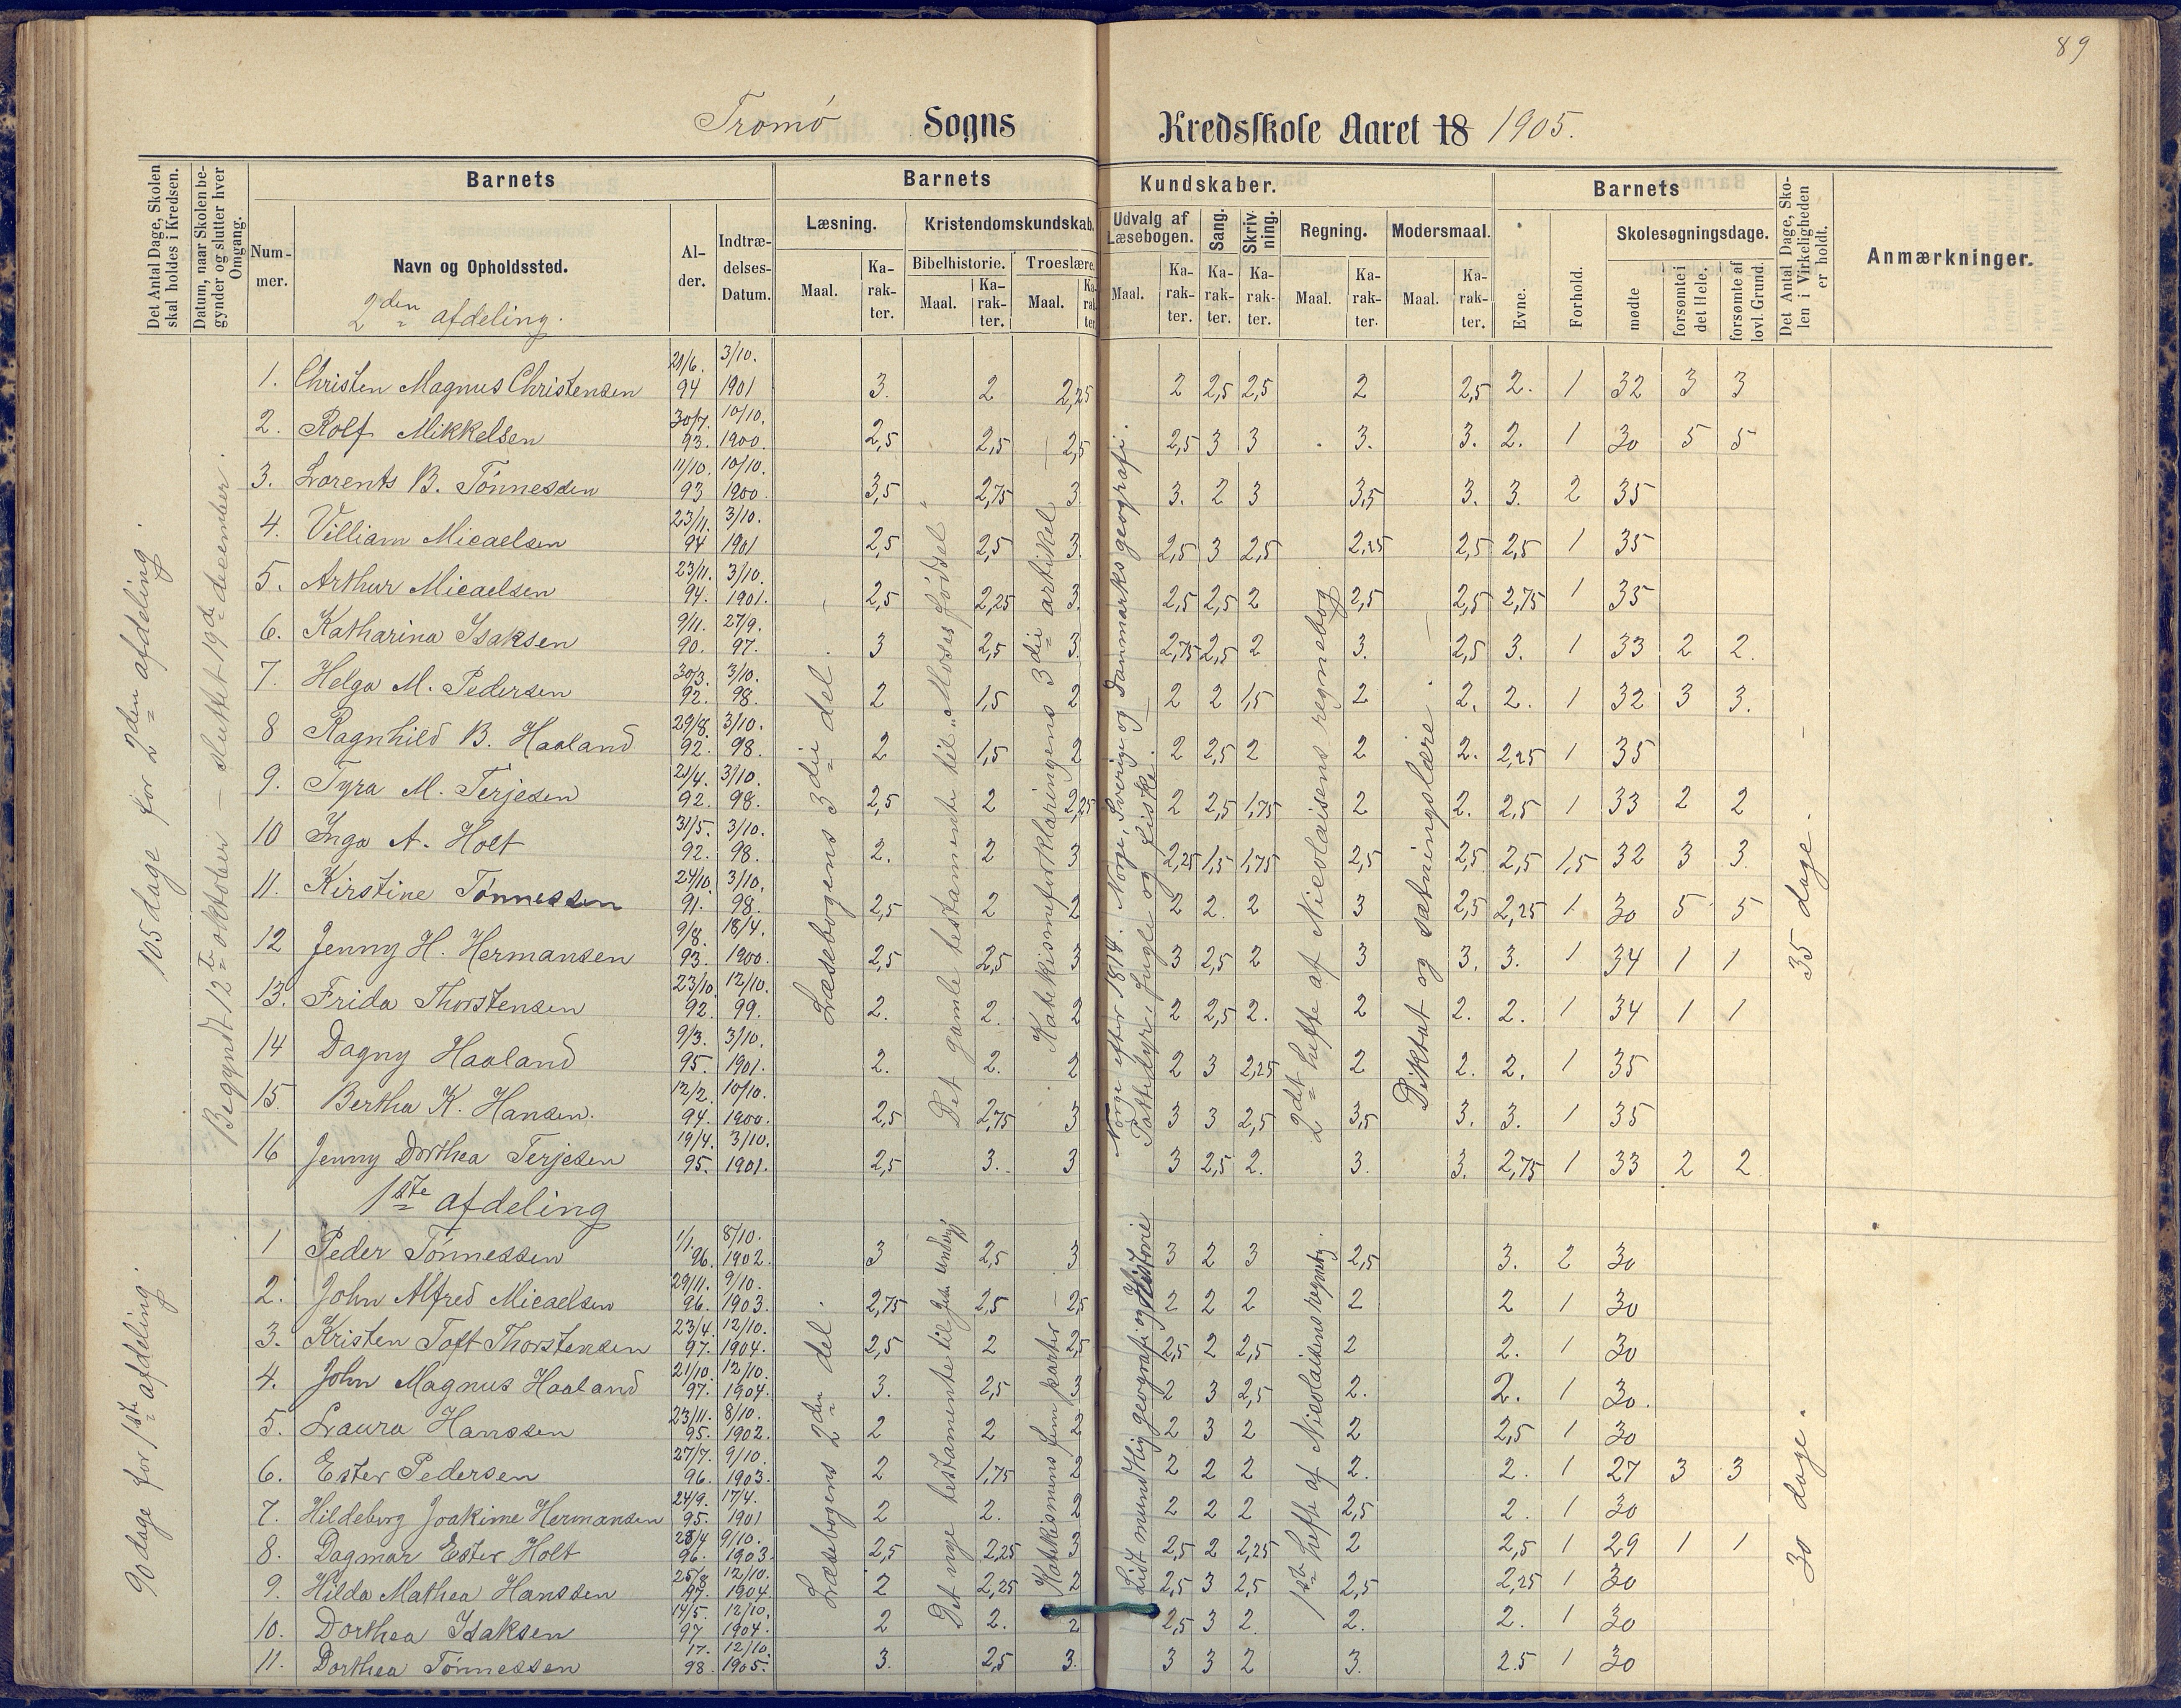 89
Tromö Sogns Kredsskole Aaret 18 1905.
Det Antal Dage, Skolen skal holdes i Kredsen.
Datum, naar Skolen begynder og slutter hver Omgang.
Barnets
Nummer.
Navn og Opholdssted.
Alder.
Indtrædelses-Datum.
Barnets Kundskaber.
Læsning.
Maal.
Karakter.
Kristendomskundskab.
Bibelhistorie.
Maal.
Karakter.
Troeslære.
Maal.
Karakter.
Udvalg af Læsebogen.
Maal.
Karakter.
Sang.
Karakter.
Skrivning.
Karakter.
Regning.
Maal.
Karakter.
Modersmaal.
Maal.
Karakter.
Barnets
Evne.
Forhold.
Skolesøgningsdage.
mødte
forsømte i det Hele.
forsømte af lovl. Grund.
Det Antal Dage, Skolen i Virkeligheden er holdt.
Anmærkninger.
2den afdeling.
105 dage for 2den afdeling.
Begyndt 12te oktober – sluttet 19de december.
Læsebogens 3die del
Det gamle testamente til „Moses fødsel"
Katekismeforklaringens 3die artikel
Norge efter 1814. Norge, Sverige og Danmarks geografi.
Pattedyr, fugle og fiske.
2det hefte af Nicolaisens regnebog
Diktat og sætningslære
35 dage.
1. Christen Magnus Christensen 21/6. 94 3/10. 1901 3. 2 2,25 2 2,5 2,5 2 2,5 2. 1 32 3 3
2. Rolf Mikkelsen 30/7. 93. 10/10. 1900 2,5 2,5 2,5 2,5 3 3 3. 3. 2. 1 30 5 5
3. Lorents B. Tönnessen 11/10. 93 10/10. 1900. 3,5 2,75 3 3. 2 3 3,5 3. 3. 2 35
4. Villiam Micaelsen 23/11. 94 3/10. 1901 2,5 2,5 3. 2,5 3 2,5 2,25 2,5 2,5 1 35
5. Arthur Micaelsen 23/11. 94. 3/10. 1901. 2,5 2,25 3. 2,5 2,5 2 2,5 2,5 2,75 1 35
6. Katharina Isaksen 9/11. 90. 27/9. 97. 3 2,5 3. 2,75 2,5 2 3. 2,5 3. 1 33 2 2.
7. Helga M. Pedersen 30/3. 92. 3/10. 98. 2 1,5 2 2 2 1,5 2 2. 2. 1 32 3 3.
8 Ragnhild B. Haaland 29/8. 92. 3/10. 98. 2 1,5 2 2 2,5 2 2 2. 2,25 1 35
9. Tyra M. Terjesen 21/4. 92. 3/10. 98. 2,5 2 2,25 2 2,5 1,75 2 2. 2,5 1 33 2 2
10 Inga A. Holt 31/5. 92. 3/10. 98. 2. 2 3 2,25 1,5 1,75 2,5 2,5 2,5 1,5 32 3 3.
11. Kirstine Tönnessen 24/10. 91. 3/10. 98. 2,5 2 2 2 2. 2 3 2,5 2,25 1 30 5 5
12 Jenny H. Hermansen 9/8. 93. 18/4. 1900. 2,5 2,5 3 3 2,5 2 3 3. 3. 1 34 1 1
13. Frida Thorstensen 23/10. 92. 12/10. 99. 2. 2. 2 2 2,5 2. 2 2. 2. 1 34 1 1
14 Dagny Haaland 9/3. 95. 3/10. 1901. 2. 2. 2 2 3 2,25 2 2. 2. 1 35
15. Bertha K. Hansen. 12/2. 94. 10/10. 1900. 2,5 2,75 3 3 3 2,5 3,5 3. 3. 1 35
16 Jenny Dorthea Terjesen 19/4. 95. 3/10. 1901. 2,5 3. 3 3 2,5 2. 3. 3. 2,75 1 33 2 2
1ste afdeling
90 dage for 1ste afdeling.
Læsebogens 2den del
Det nye testamente til Jesu
Katekismens fem parter
Lidt mundtlig geografi og Historie
1ste hefte af Nicolaisens
30 dage.
1 Peder Tönnessen 1/1. 96. 8/10. 1902. 3 2,5 3 3 2 3 2,5 3. 2 30
2. John Alfred Micaelsen 29/11. 96. 9/10. 1903. 2,75 2,5 2,5 2 2 2 2 2 1 30
3. Kristen Toft Thorstensen 23/4. 97. 12/10. 1904. 2,5 2 2,5 2,5 2 2,5 2 2. 1 30
4. John Magnus Haaland 21/10. 97. 12/10. 1904. 3. 2,5 3 2 3 2,5 2. 2. 1 30.
5. Laura Hanssen 23/11. 95. 8/10. 1902. 2 2 2 2 3 2 2 2,5 1 30
6. Ester Pedersen 27/7. 96. 9/10. 1903. 2 1,75 2 2 2 2 2. 2. 1 27 3 3
7. Hildeborg Joakime Hermansen 24/9. 95. 17/4. 1901 2 2. 2 2 2 2 2,5 2. 1 30
8. Dagmar Ester Holt 28/4 96. 9/10. 1903. 2,5 2,25 3 2,5 2 2,25 2 2,5 1 29 1 1
9. Hilda Mathea Hanssen 97. 12/10. 1904. 2 2,25 2 2,5 3 2,5 2,5 2,25 1 30
10. Dorthea Isaksen 14/5. 97 12/10. 1904. 2 2. 2 2,5 3 2. 2. 2. 1 30
11. Dorthea Tönnessen 17. 98. 12/10. 1905. 3. 2,5 3. 3 3 2 3. 2.5 1 30